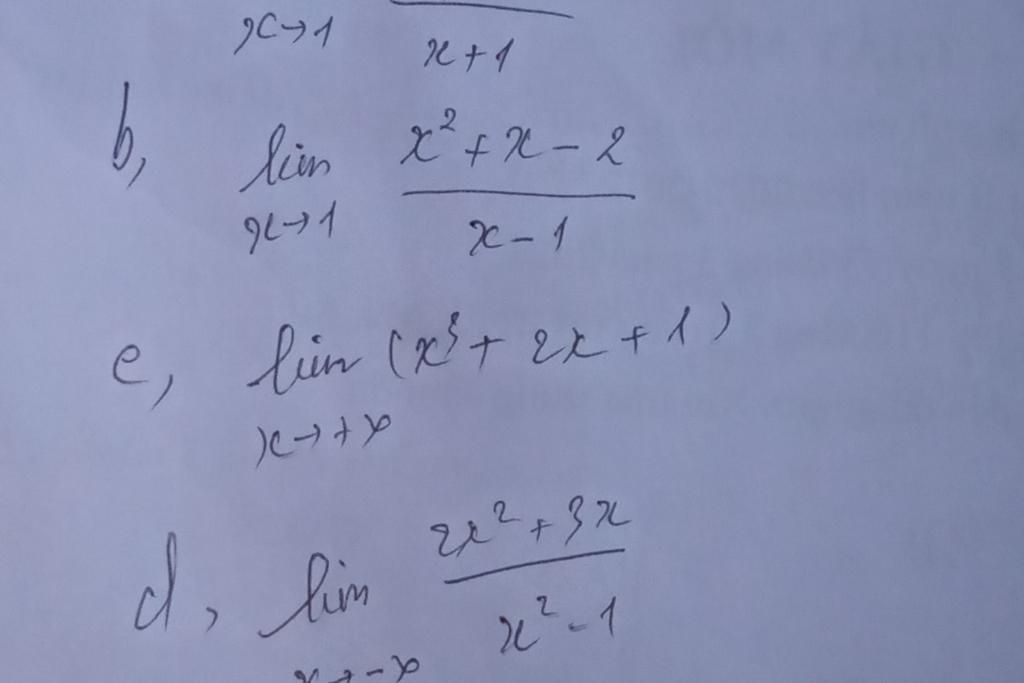 x→1 x+1
b, lim x²+x-2
x→1 x-1
c, lim (x³+2x+1)
x→+∞
d, lim 2x²+3x
x→-∞ x²-1